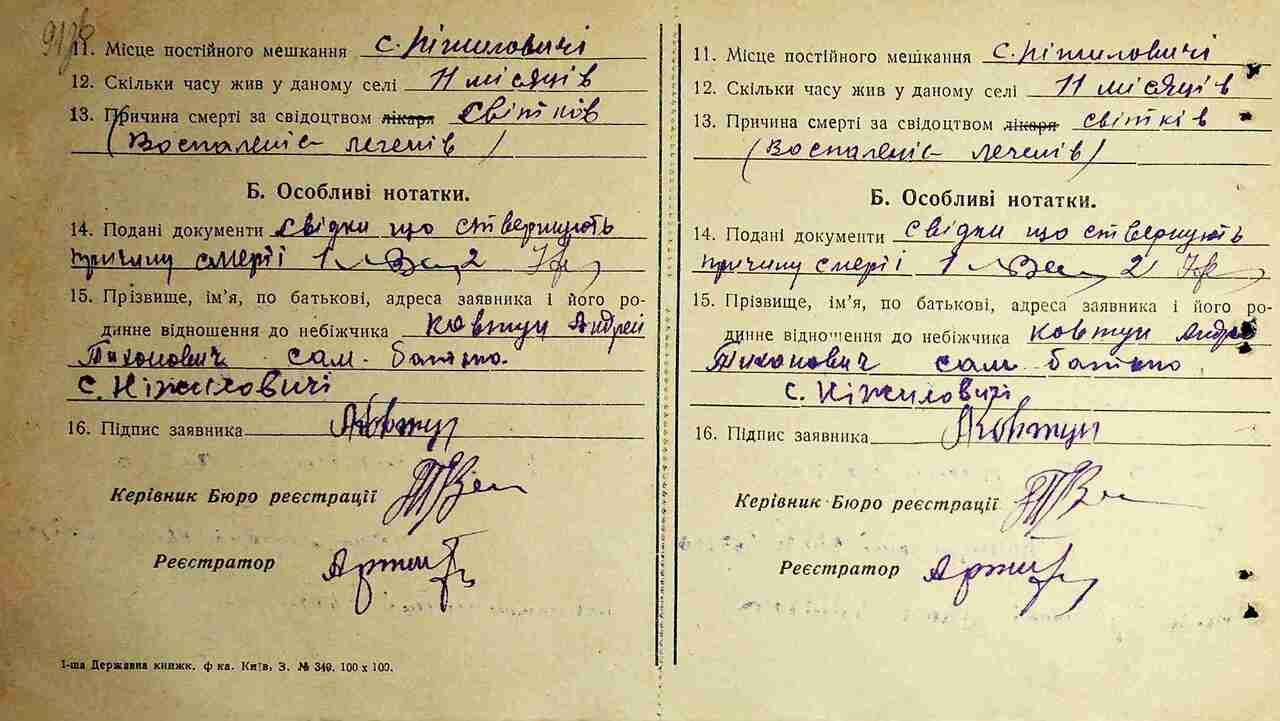 11. Місце постійного мешкання с. Ніжиловичі
12. Скільки часу жив у даному селі 11 місяців
13. Причина смерті за свідоцтвом лікаря світків
(Воспаленіє легенів)
Б. Особливі нотатки.
14. Подані документи свідки що ствержують
причину смерті 1 2
15. Прізвище, ім’я, по батькові, адреса заявника і його ро-
динне відношення до небіжчика Ковтун Андрей
Тихонович сам. батько.
с. Ніжиловичі
16. Підпис заявника Ковтун
Керівник Бюро реєстрації
Реєстратор
1-ша Державна книжк. ф ка. Київ, З. № 349. 100 х 100.
11. Місце постійного мешкання с. Ніжиловичі
12. Скільки часу жив у даному селі 11 місяців
13. Причина смерті за свідоцтвом лікаря світків
(Воспаленіє легенів)
Б. Особливі нотатки.
14. Подані документи свідки що ствержують
причину смерті 1 2
15. Прізвище, ім’я, по батькові, адреса заявника і його ро-
динне відношення до небіжчика Ковтун Андрей
Тихонович сам. батько
с. Ніжиловичі
16. Підпис заявника Ковтун
Керівник Бюро реєстрації
Реєстратор